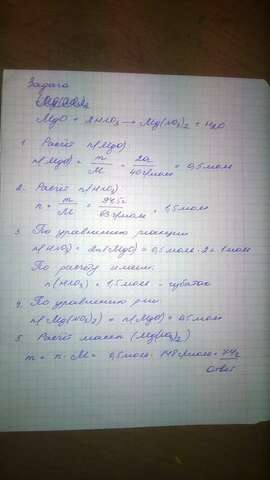 Задача
MgO + 2HNO₃ → Mg(NO₃)₂ + H₂O
1. Расчёт n(MgO)
n(MgO) = m/M = 20г/40г/моль = 0,5 моль
2. Расчёт n(HNO₃)
n = m/M = 94,5г/63г/моль = 1,5 моль
3. По уравнению реакции
n(HNO₃) = 2n(MgO) = 0,5 моль · 2 = 1 моль
По расчёту имеем:
n(HNO₃) = 1,5 моль - избыток
4. По уравнению р-ии:
n(Mg(NO₃)₂) = n(MgO) = 0,5 моль
5. Расчёт массы (Mg(NO₃)₂)
m = n · M = 0,5 моль · 148 г/моль = 74г
Ответ